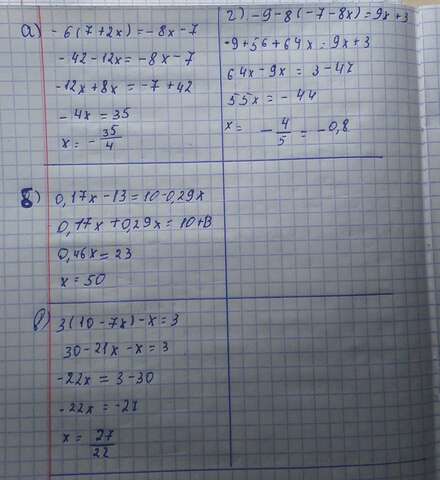 а) -6(7+2x)=-8x-7
-42-12x=-8x-7
-12x+8x=-7+42
-4x=35
x=-35/4
г) -9-8(-7-8x)=9x+3
-9+56+64x=9x+3
64x-9x=3-47
55x=-44
x= -4/5=-0,8
б) 0,17x-13=10-0,29x
0,17x+0,29x=10+13
0,46x=23
x=50
в) 3(10-7x)-x=3
30-21x-x=3
-22x=3-30
-22x=-27
x=27/22